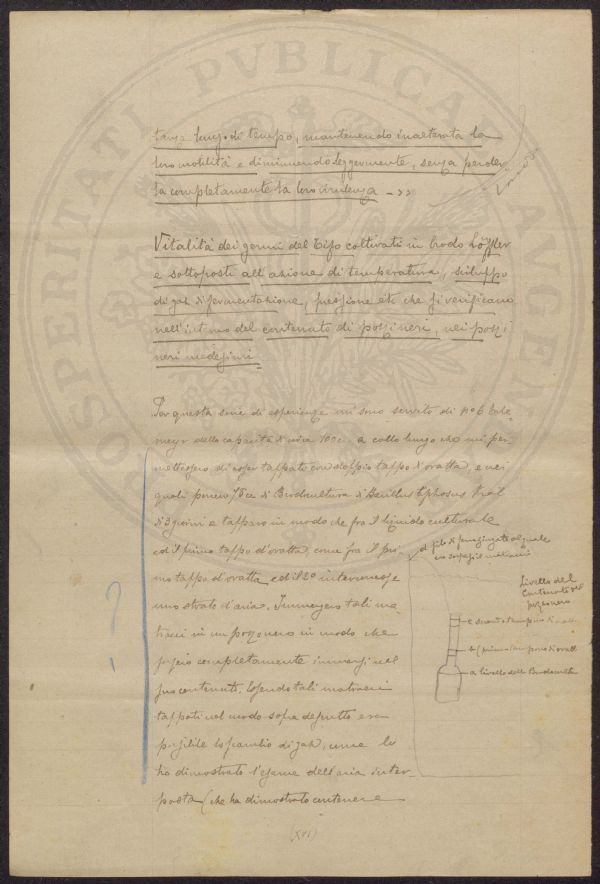 lungo di tempo, mantenendo inalterata la
loro mobilità e diminuendo leggermente, senza perder
la completamente la loro virulenza
Vitalità dei germi del Tifo coltivati in brodo Löffler
e sottoposti all'azione di temperatura, sviluppo
di gaz di fermentazione, pressione etc che si verificano
nell'intimo del contenuto di pozzi neri, nei pozzi
neri medesimi.
Per questa serie di esperienze mi sono servito di n° 6 Erle-
meyer della capacità di circa 100cc a collo lungo che mi per-
mettessero di esser tappati con doppio tappo d'ovatta, e nei
quali ponevo 75cc di Brodocultura di Bacillus typhosus
di 3 giorni e tappavo in modo che fra il liquido culturale
ed il primo tappo d'ovatta, come fra il pri-
mo tappo d'ovatta ed il 2° intercorresse
uno strato d'aria. Immergevo tali ma-
tracci in un pozzo nero in modo che
fossero completamente immersi nel
suo contenuto. Essendo tali matracci
tappati nel modo sopra descritto era
possibile lo scambio di gaz, come lo
ha dimostrato l'esame dell'aria inter-
posta (che ha dimostrato contenere
al quale
Livello del
Contenuto del
pozzonero
c secondo tampone di ovatta
b (primo tampone di ovatta
a livello della Brodocultura
?
(XVI)
PROSPERITATI PVBLICAE AVGENDAE